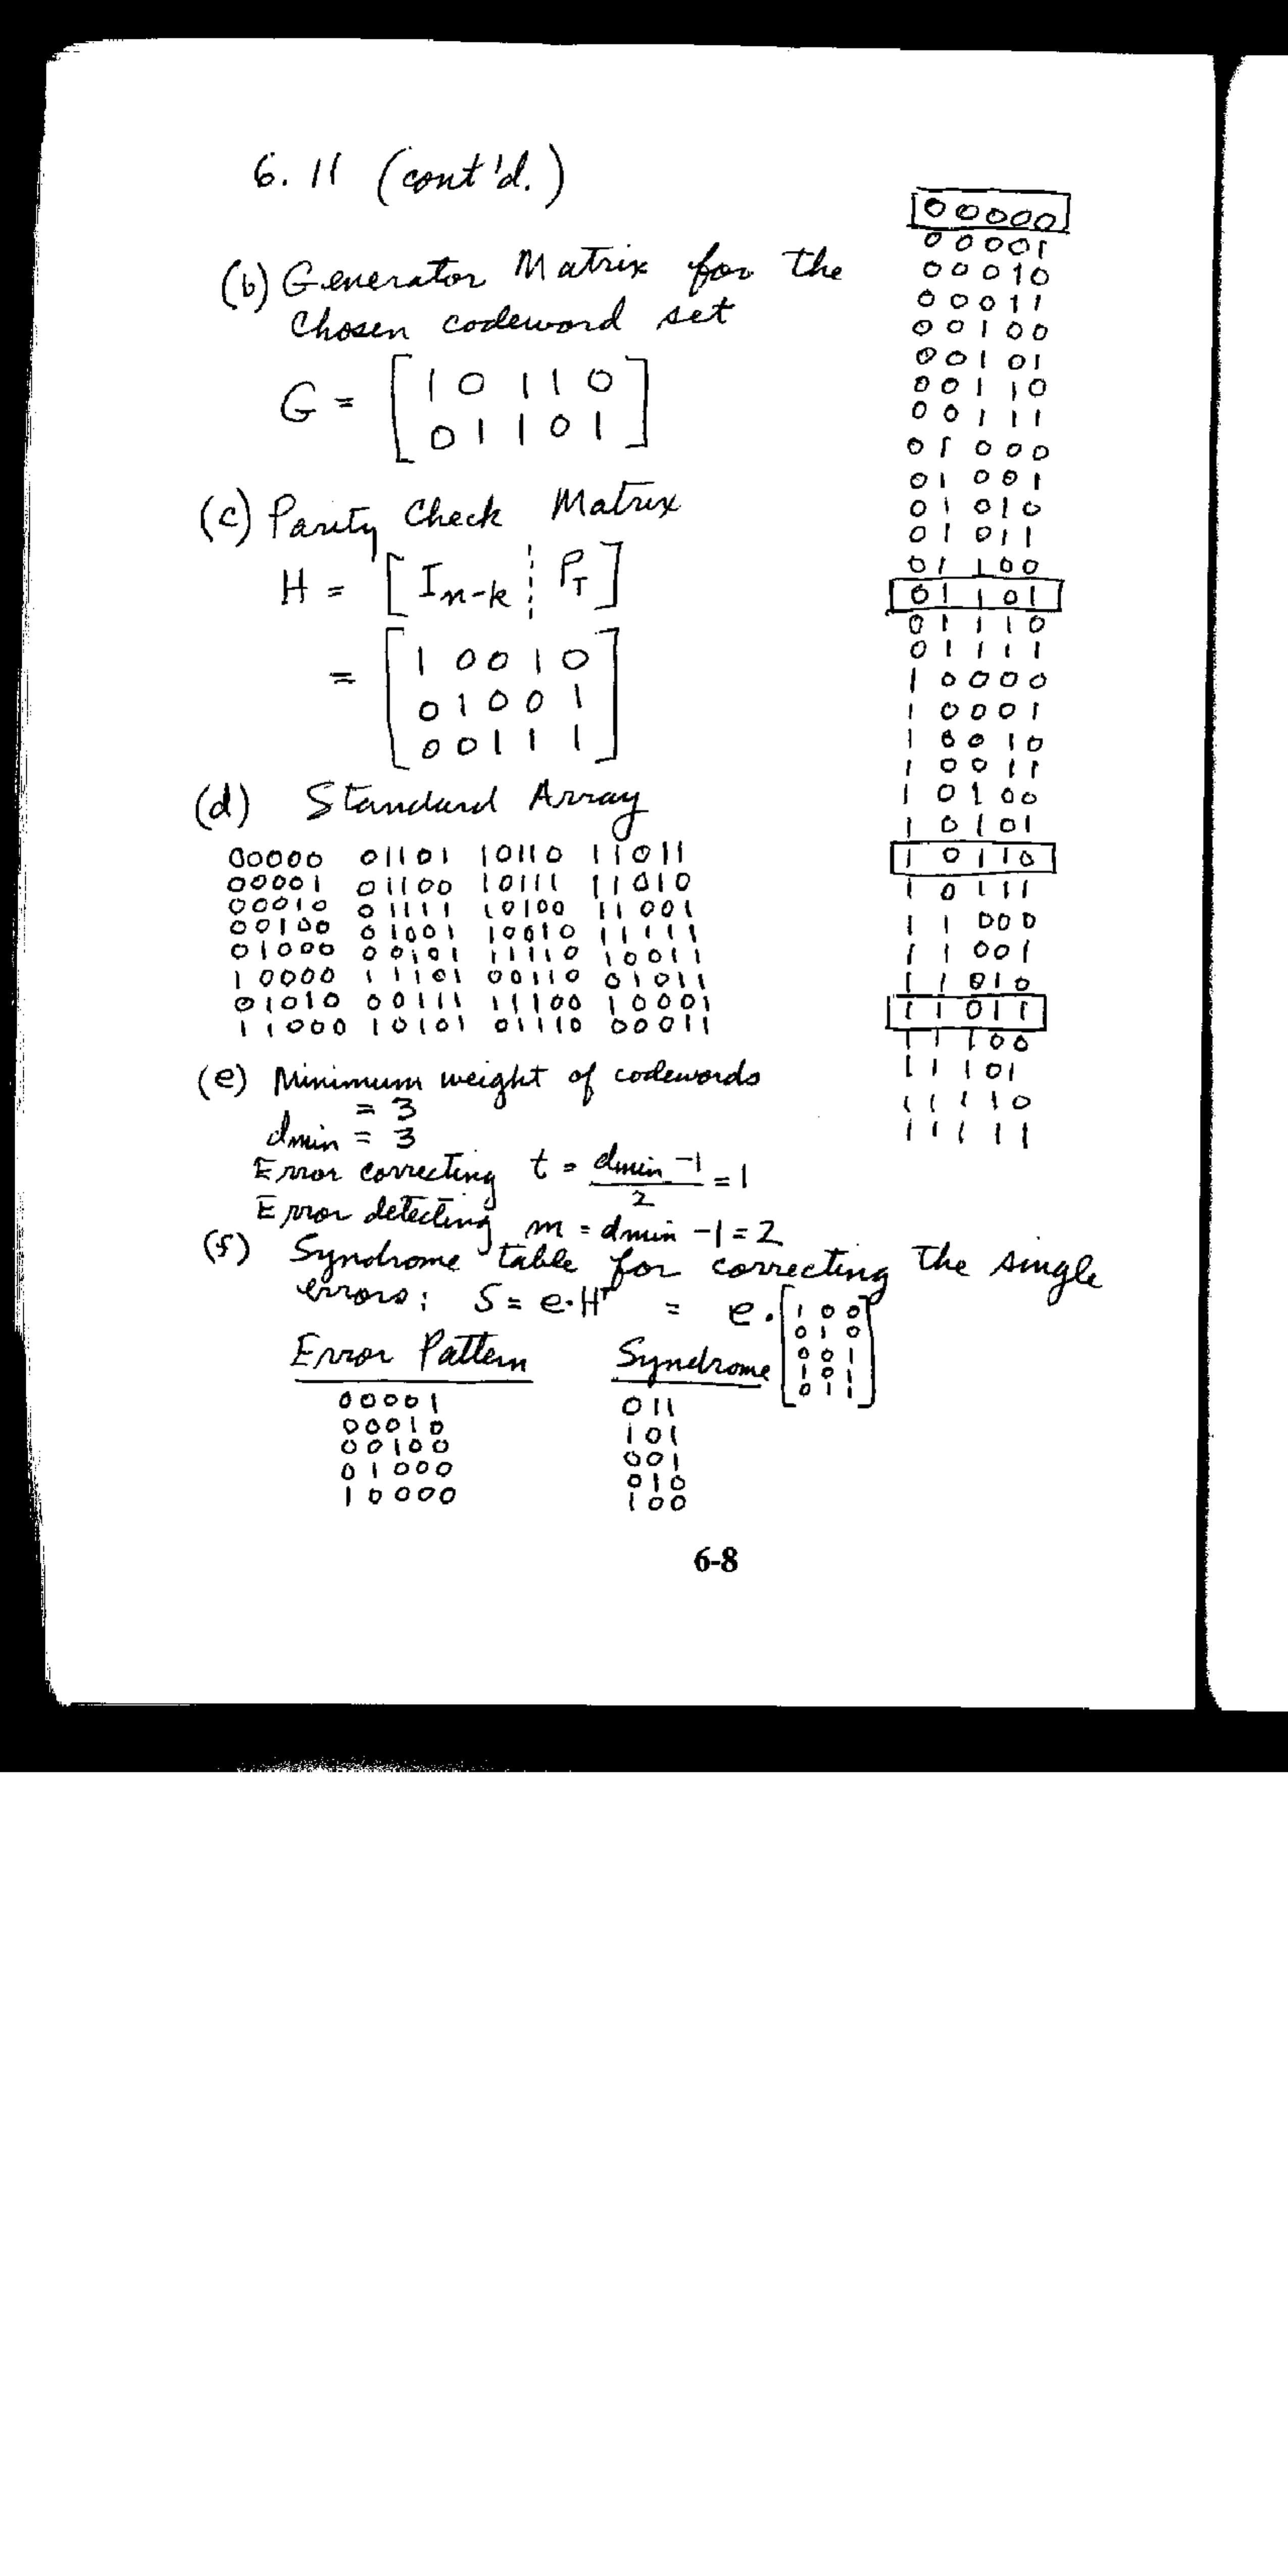 6.11 (cont'd.)
(b) Generator Matrix for the
chosen codeword set
G = [ 1 0 1 1 0
0 1 1 0 1 ]
(c) Parity Check Matrix
H = [ I n-k ¦ PT ]
= [ 1 0 0 1 0
0 1 0 0 1
0 0 1 1 1 ]
(d) Standard Array
00000 01101 10110 11011
00001 01100 10111 11010
00010 01111 10100 11001
00100 01001 10010 11111
01000 00101 11110 10011
10000 11101 00110 01011
01010 00111 11100 10001
11000 10101 01110 00011
(e) Minimum weight of codewords
= 3
dmin = 3
Error correcting t = dmin -1 / 2 = 1
Error detecting m = dmin -1 = 2
(f) Syndrome table for correcting the single
errors: S = e·H^T = e· [ 1 0 0
0 1 0
0 0 1
1 0 1
0 1 1 ]
Error Pattern Syndrome
00001 011
00010 101
00100 001
01000 010
10000 100
00000
00001
00010
00011
00100
00101
00110
00111
01000
01001
01010
01011
01100
01101
01110
01111
10000
10001
10010
10011
10100
10101
10110
10111
11000
11001
11010
11011
11100
11101
11110
11111
6-8